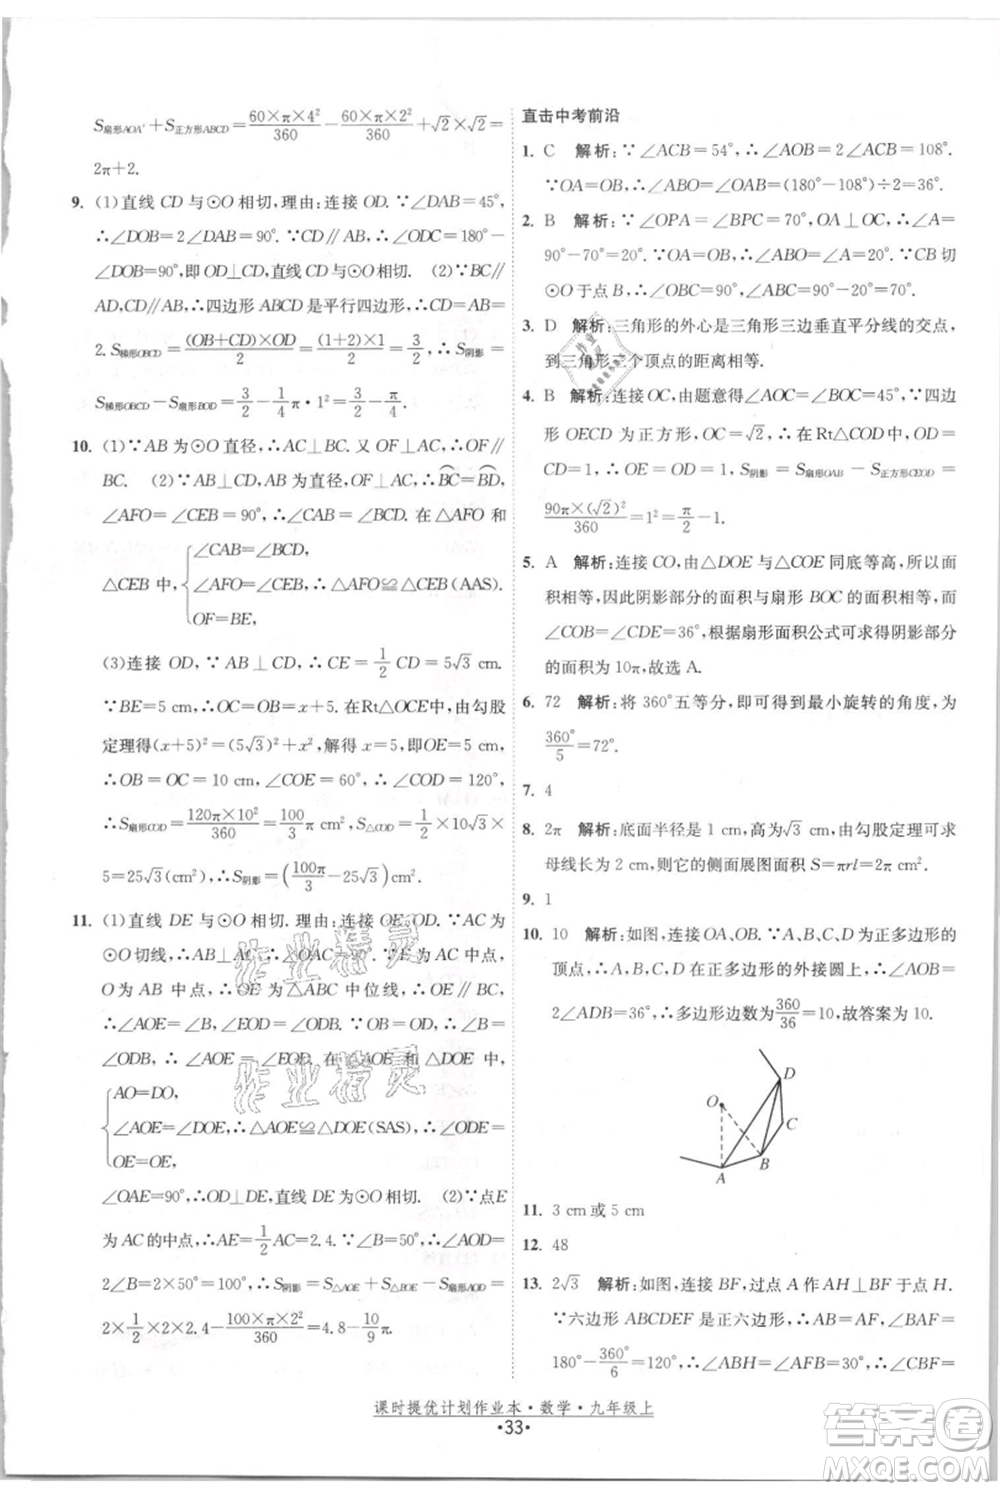 S扇形AOA′+S正方形ABCD=60×π×4²/360−60×π×2²/360+√2×√2=
2π+2.
9. (1)直线 CD 与⊙O 相切,理由:连接 OD.∵∠DAB=45°,
∴∠DOB=2∠DAB=90°.∵CD∥AB,∴∠ODC=180°−
∠DOB=90°,即 OD⊥CD,直线 CD 与⊙O 相切. (2)∵BC∥
AD,CD∥AB,∴四边形 ABCD 是平行四边形,∴CD=AB=
2.S梯形OBCD=(OB+CD)×OD/2=(1+2)×1/2=3/2,∴S阴影=
S梯形OBCD−S扇形BOD=3/2−1/4π·1²=3/2−π/4.
10. (1)∵AB 为⊙O 直径,∴AC⊥BC.又 OF⊥AC,∴OF∥
BC. (2)∵AB⊥CD,∴BC⌒=BD⌒,
∠AFO=∠CEB=90°,∴∠CAB=∠BCD.在△AFO 和
△CEB 中,{∠CAB=∠BCD,
∠AFO=∠CEB,∴△AFO≌△CEB(AAS).
OF=BE,
(3)连接 OD,∵AB⊥CD,∴CE=1/2 CD=5√3 cm.
∵BE=5 cm,∴OC=OB=x+5.在Rt△OCE中,由勾股
定理得(x+5)²=(5√3)²+x²,解得 x=5,即OE=5 cm,
∴OB=OC=10 cm,∠COE=60°,∴∠COD=120°,
∴S扇形COD=120π×10²/360=100/3π(cm²),S△COD=1/2×10√3×
5=25√3(cm²),∴S阴影=(100π/3−25√3)cm².
11. (1)直线 DE 与⊙O 相切.理由:连接 OE,OD.∵AC为
⊙O切线,∴AB⊥AC,∴∠OAC=90°.∵点 E 为 AC 中点,
O为 AB 中点,∴OE为△ABC 中位线,∴OE∥BC,
∴∠AOE=∠B,∠EOD=∠ODB.∵OD=OB,∴∠B=
∠ODB,∴∠AOE=∠EOD.在△AOE 和△DOE 中,
{AO=DO,
∠AOE=∠DOE,∴△AOE≌△DOE(SAS),∴∠ODE=
OE=OE,
∠OAE=90°,∴OD⊥DE,直线 DE 与⊙O 相切. (2)∵点E
为 AC 的中点,∴AE=1/2AC=2.4.∵∠B=50°,∴∠AOD=
2∠B=2×50°=100°,∴S阴影=S△AOE+S△DOE−S扇形AOD=
2×1/2×2×2.4−100×π×2²/360=4.8−10/9π.
直击中考前沿
1. C 解析:∵∠ACB=54°,∴∠AOB=2∠ACB=108°.
∵OA=OB,∴∠OAB=(180°−108°)÷2=36°.
2. B 解析:∵∠OPA=∠BPC=70°,OA⊥OC,∴∠A=
90°−70°=20°.∵OA=OB,∴∠OBA=∠A=20°.∵CB 切
⊙O 于点 B,∴∠OBC=90°,∴∠ABC=20°+90°=110°.
3. D 解析:三角形的外心是三角形三边垂直平分线的交点,
到三角形三个顶点的距离相等.
4. B 解析:连接 OC,由题意得∠AOC=∠BOC=45°,∵四边
形 OECD 为正方形,OC=√2,∴在Rt△COD中,OD=
CD=1,∴OE=OD=1.S阴影=S扇形OAB−S正方形CEOD=
90π×(√2)²/360−1²=π/2−1.
5. A 解析:连接 CO,由于△DOE与△COE 同底等高,所以
面积相等,因此阴影部分的面积与扇形 BOC 的面积相等,
∠COB=∠CDE=36°,根据扇形面积公式可求得阴影部分
的面积为 10π,故选 A.
6. 72 解析:将 360°五等分,即可得到最小旋转的角度,为
360°/5=72°.
7. 4
8. 2π 解析:底面半径是 1 cm,高为√3 cm,由勾股定理可求
母线长为 2 cm,则它的侧面展图面积 S=πrl=2π cm².
9. 1
10. 10 解析:如图,连接 OA,OB.∵A,B,C,D 为正多边形的
顶点,∴A,B,C,D 在正多边形的外接圆上,∴∠AOB=
2∠ADB=36°,∴正多边形边数=360/36=10,故答案为 10.
O
D
C
B
A
11. 3 cm 或 5 cm
12. 48
13. 2√3 解析:如图,连接 BF,过点 A 作 AH⊥BF 于点 H.
∵六边形 ABCDEF 是正六边形,∴AB=AF,∠BAF=
180°−360°/6=120°,∴∠ABH=∠AFB=30°,∴∠CBF=
课时提优计划作业本·数学·九年级上
·33·
作业精灵
作业精灵
答案圈
MXQE.COM